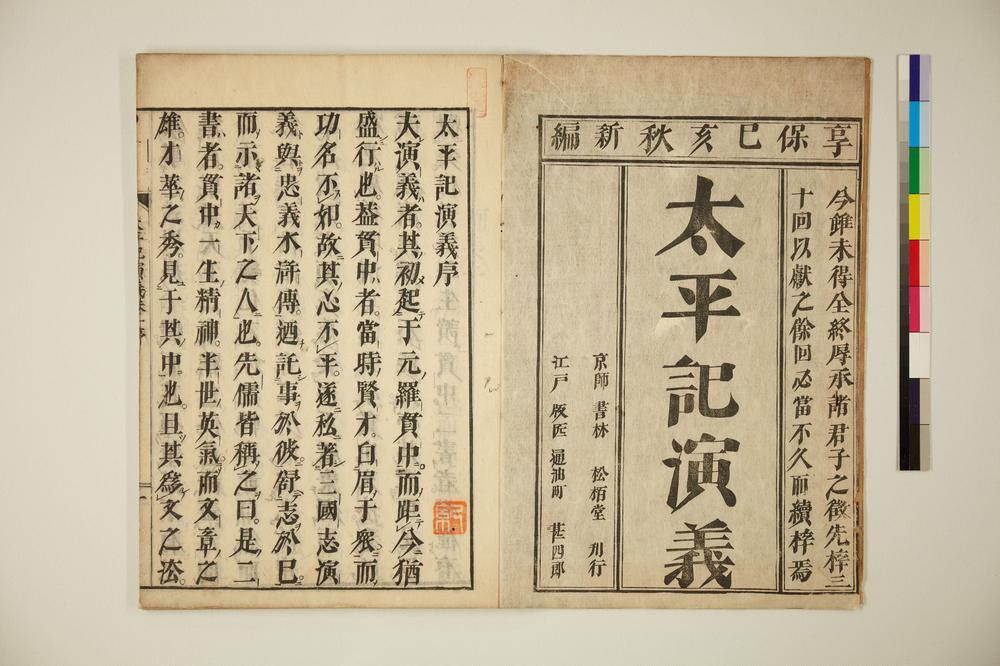 享保己亥秋新編
今雖未得全終辱承諸君子之徵先梓三
十回以獻之餘回必當不久而續梓焉
太平記演義
京師 書林 松栢堂 刋行
江戸 版匠 通油町 甚四郎
太平記演義序
夫演義者。其初起于元羅貫中。而距今猶
盛行也。蓋貫中者。當時賢才。白眉于衆。而
功名不如。故其心不平。遂私著三國志演
義與忠義水滸傳。迺託事於彼。舒志於已。
而示諸天下之人也。先儒皆稱之曰。是二
書者。貫中一生精神。半世英氣。而文章之
雄。才華之秀。見于其中也。且其爲文之法。